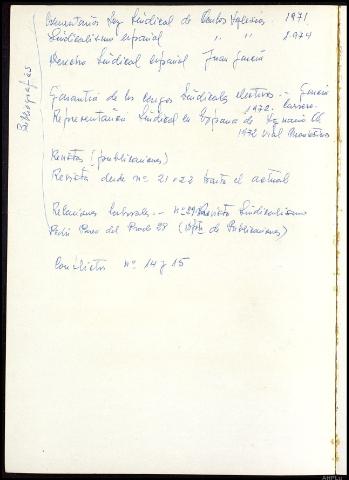 Bibliografías
Comentarios Ley Sindical de Carlos Iglesias. 1971.
Sindicalismo español " " 1974
Derecho Sindical español Juan García
Garantía de los cargos Sindicales electivos -. Ignacio
1972. Carrero.
Representación Sindical en España de Ignacio
1972
Revistas (publicaciones)
Revista desde nº 21 o 22 hasta el actual
Relaciones laborales -. nº 29 Revista Sindicalismo
Pedir Paseo del Prado 28 (Dpto de Publicaciones)
Conflictos nº 14 y 15
AHPLU